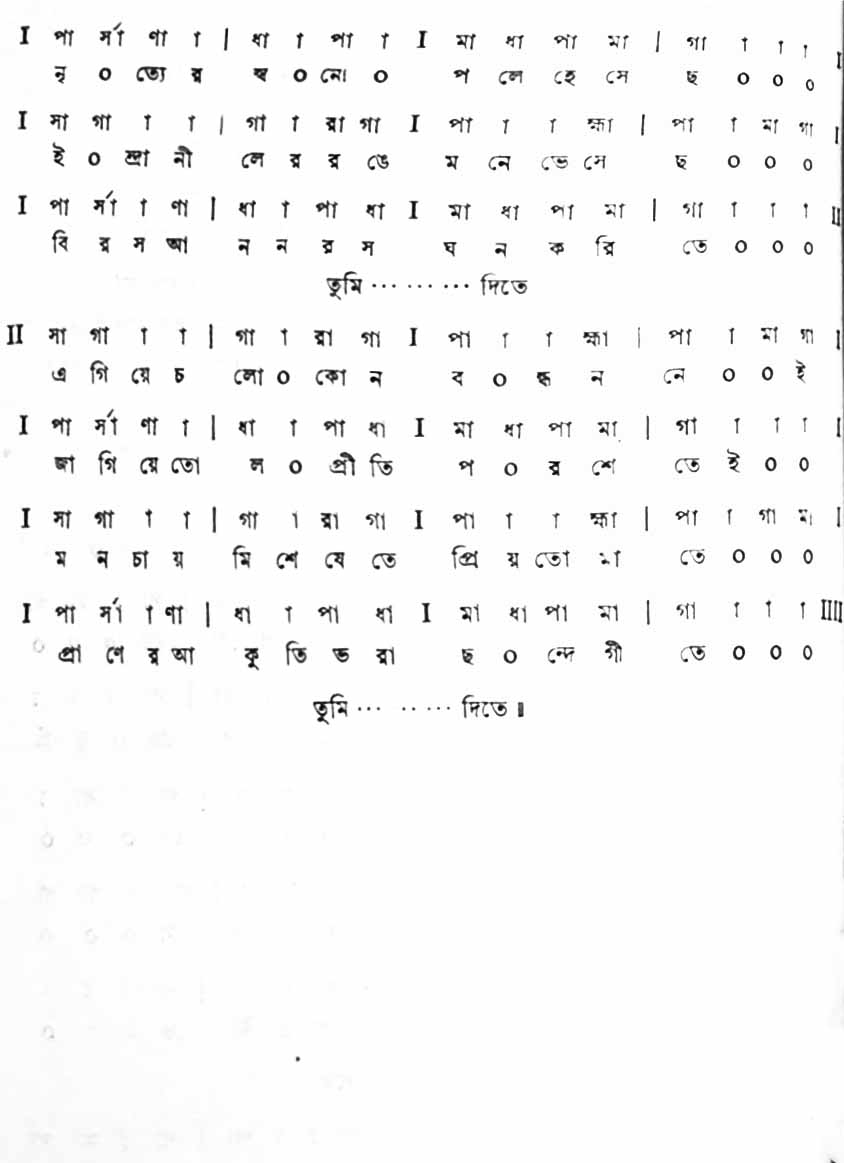 I পা র্সা ণা া | ধা া পা া I মা ধা পা মা | গা া া া I
নৃ ০ ত্যের স্ব ০ নে ০ প লে হে সে ছ ০ ০ ০
I সা গা া া | গা া রা গা I পা া া হ্মা | পা া মা গা I
ই ০ ন্দ্রা নী লে র র ঙে ম নে ভে সে ছ ০ ০ ০
I পা র্সা া ণা | ধা া পা ধা I মা ধা পা মা | গা া া া II
বি র স আ ন ন র স ঘ ন ক রি তে ০ ০ ০
তুমি ··· ··· ··· দিতে
II সা গা া া | গা া রা গা I পা া া হ্মা | পা া মা গা I
এ গি য়ে চ লো ০ কো ন ব ০ ন্ধ ন নে ০ ০ ই
I পা র্সা ণা া | ধা া পা ধা I মা ধা পা মা | গা া া া I
জা গি য়ে তো ল ০ প্রী তি প ০ র শে তে ই ০ ০
I সা গা া া | গা া রা গা I পা া া হ্মা | পা া গা মা I
ম ন চা য় মি শে যে তে প্রি য় তো মা তে ০ ০ ০
I পা র্সা া ণা | ধা া পা ধা I মা ধা পা মা | গা া া া IIII
প্রা ণে র আ কু তি ভ রা ছ ০ ন্দে গী তে ০ ০ ০
তুমি ··· ·· ··· দিতে ॥